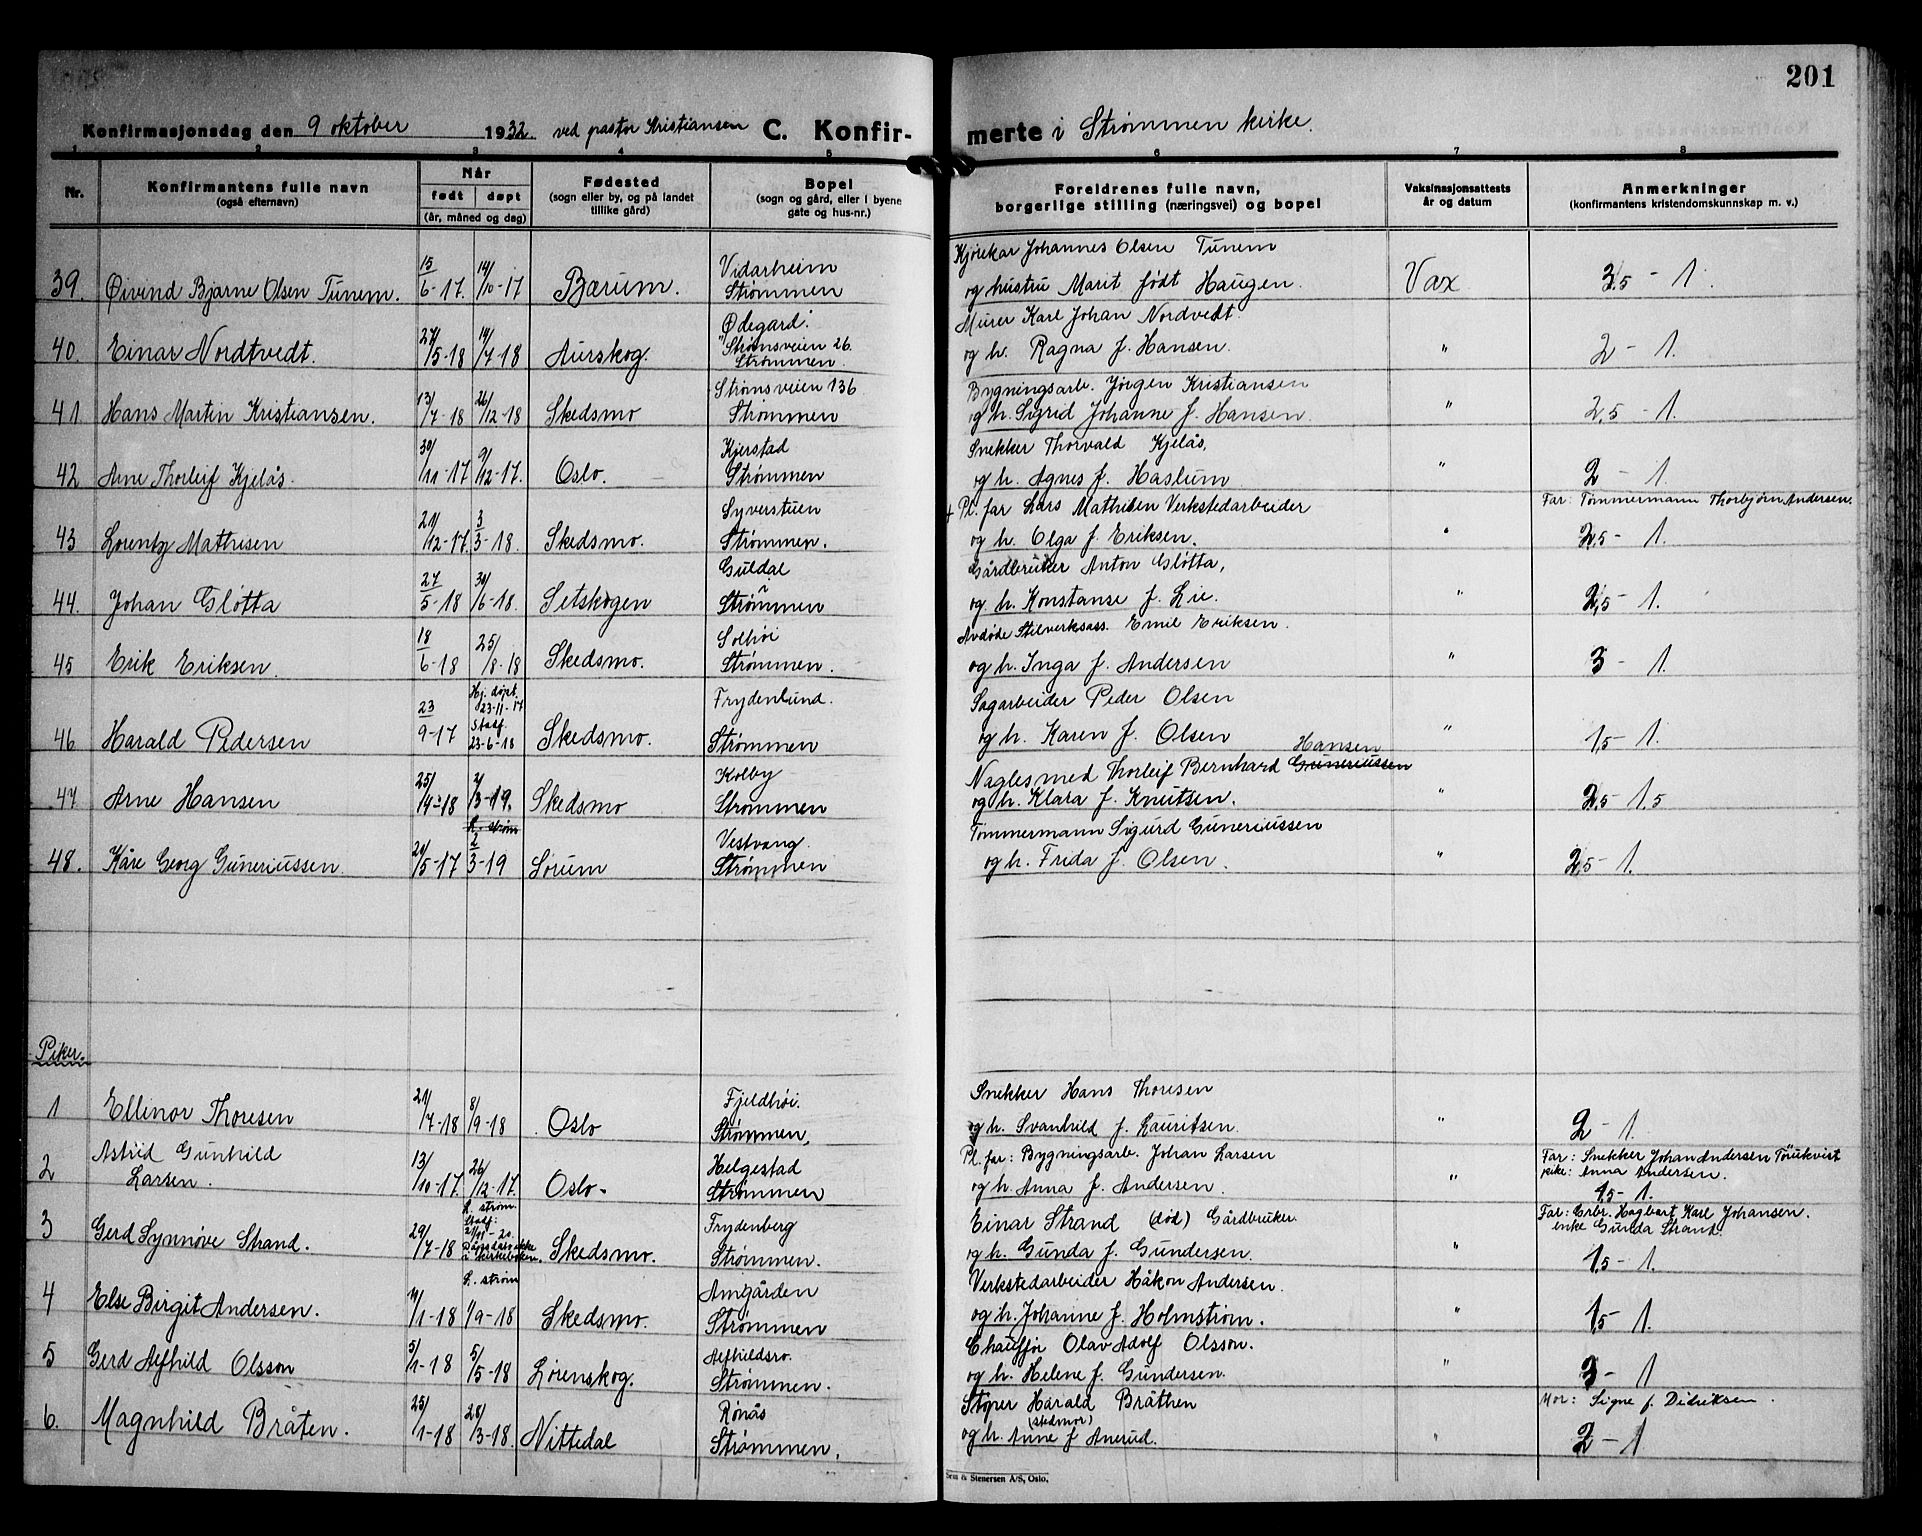 201
Konfirmasjonsdag den 9 oktober 1932 ved pastor Kristiansen C. Konfirmerte i Strømmen kirke.
1 2 3 4 5 6 7 8
Nr. Konfirmantens fulle navn (også efternavn) Når født døpt (år, måned og dag) Fødested (sogn eller by, og på landet tillike gård) Bopel (sogn og gård, eller i byene gate og hus-nr.) Foreldrenes fulle navn, borgerlige stilling (næringsvei) og bopel Vaksinasjonsattests år og datum Anmerkninger (konfirmantens kristendomskunnskap m. v.)
Vidarheim Kjørekar Johannes Olsen Tunem
39. Øivind Bjarne Olsen Tunem. 15/6-17. 14/10-17 Bærum. Strømmen og hustru Marit født Haugen. Vax 3,5 - 1.
Ødegard. Murer Karl Johan Nordvedt.
40. Einar Nordtvedt. 27/5-18 14/7-18 Aurskog. Strømsveien 26. Strømmen. og h. Ragna f. Hansen. " 2 - 1.
Strømsveien 136 Bygningsarb. Jørgen Kristiansen
41. Hans Martin Kristiansen. 13/7-18 26/12-18 Skedsmo Strømmen og h. Sigrid Johanne f. Hansen. " 2,5 - 1.
Kjerstad Snekker Thorvald Kjelås,
42 Arne Thorleif Kjelås. 30/11-17 9/12-17. Oslo. Strømmen og h. Agnes f. Haslum " 2 - 1.
Syverstuen + Pl. far Lars Mathisen Verkstedarbeider Far: Tømmermann Thorbjørn Andersen.
43 Lorentz Mathisen 21/12-17 3/3-18. Skedsmo. Strømmen. og h. Olga f. Eriksen. " 2,5 - 1.
Guldal Gårdbruker Anton Sløtta,
44. Johan Sløtta 27/5-18 30/6-18. Setskogen Strømmen og h. Konstanse f. Lie. " 2,5 - 1.
Solhøi Avdøde Stilverksass. Emil Eriksen.
45 Erik Eriksen. 18/6-18 25/8-18 Skedsmo. Strømmen. og h. Inga f. Andersen " 3 - 1.
Hj. døpt. 23-11-17 Frydenlund. Sagarbeider Peder Olsen
46 Harald Pedersen 23/9-17 Stadf. 23-6-18 Skedsmo. Strømmen og h. Karen f. Olsen " 1,5 - 1.
Kolby Naglesmed Thorleif Bernhard Guneriussen Hansen
47 Arne Hansen 25/4-18 2/3-19. Skedsmo Strømmen og h. Klara f. Knutsen. " 2,5 - 1,5
L. strøm Vestvang. Tømmermann Sigurd Guneriussen
48. Kåre Georg Guneriussen. 20/5-17 2/3-19 Sørum Strømmen og h. Frida f. Olsen. " 2,5 - 1.
Piker.
Fjeldhøi. Snekker Hans Thoresen
1 Ellinor Thoresen 21/7-18 8/9-18 Oslo Strømmen, og h. Svanhild f. Lauritsen. " 2 - 1.
Astrid Gunhild Helgestad Pl. far: Bygningsarb. Johan Larsen Far: Snekker Johan Andersen
2 Larsen. 13/10-17. 26/12-17. Oslo. Strømmen og h. Anna f. Andersen. " pike: Anna Andersen. 1,5 - 1.
L. strøm. Stadf. Frydenberg Einar Strand (død) Gårdbruker. Far: Hagbart Karl Johansen. enke Gunda Strand.
3 Gerd Synnøve Strand. 29/7-18 ikke i kirkeboken. Skedsmo. Strømmen. og h. Gunda f. Gundersen. " 1,5 - 1.
L. strøm Amgården Verkstedarbeider Håkon Andersen.
4 Else Birgit Andersen. 11/1-18 1/9-18 Skedsmo. Strømmen og h. Johanne f. Holmstrøm. " 1,5 - 1.
Alfhildsro. Chauffør Olav Adolf Olsson.
5 Gerd Alfhild Olsson 5/1-18 5/5-18 Lørenskog. Strømmen. og h. Helene f. Gundersen. " 3 - 1
Rønås Støper Harald Bråthen Mor: Signe f. Didriksen.
6. Magnhild Bråten. 25/1-18 28/3-18. Nittedal Strømmen. og h. (stedmor) Anne f Anerud. " 2 - 1
Sem & Stenersen A/S, Oslo.